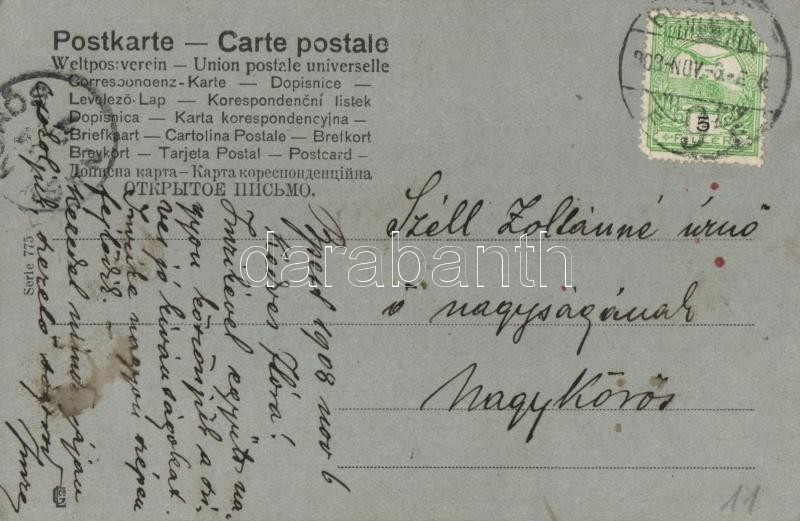 Postkarte — Carte postale
Weltpostverein — Union postale universelle
Correspondenz-Karte — Dopisnice —
Levelező-Lap — Korespondenční listek
Dopisnica — Karta korespondencyjna —
Briefkaart — Cartolina Postale — Brefkort
Brevkort — Tarjeta Postal — Postcard —
Дописна карта — Карта кореспонденційна
ОТКРЫТОЕ ПИСЬМО.
Serie 775
908 NOV
5
FILLÉR
Széll Zoltánné úrnő
ő nagyságának
Nagykőrös
Bpest 1908 nov 6
Kedves Flóra!
Imrikével együtt na-
gyon köszönjük a szi-
ves jó kivánságokat.
Imrike nagyon szépen
fejlődik. —
kezedet
szerető
Imre
darabanth
11